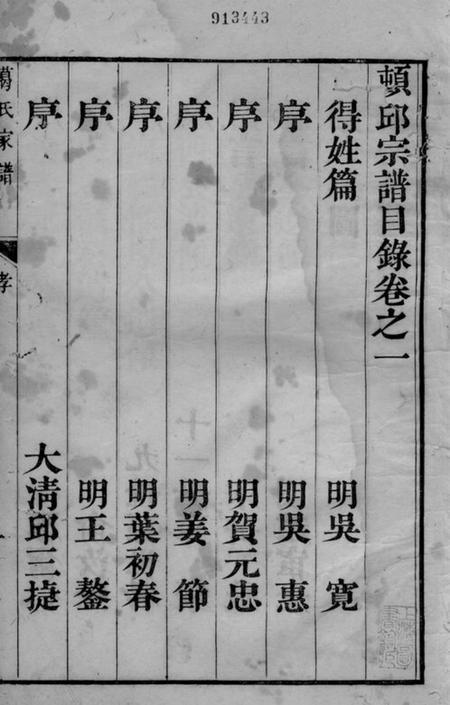 913443
頓邱宗譜目錄卷之一
得姓篇 明吳寬
序 明吳惠
序 明賀元忠
序 明姜節
序 明葉初春
序 明王鏊
序 大清邱三捷
葛氏家譜 孝